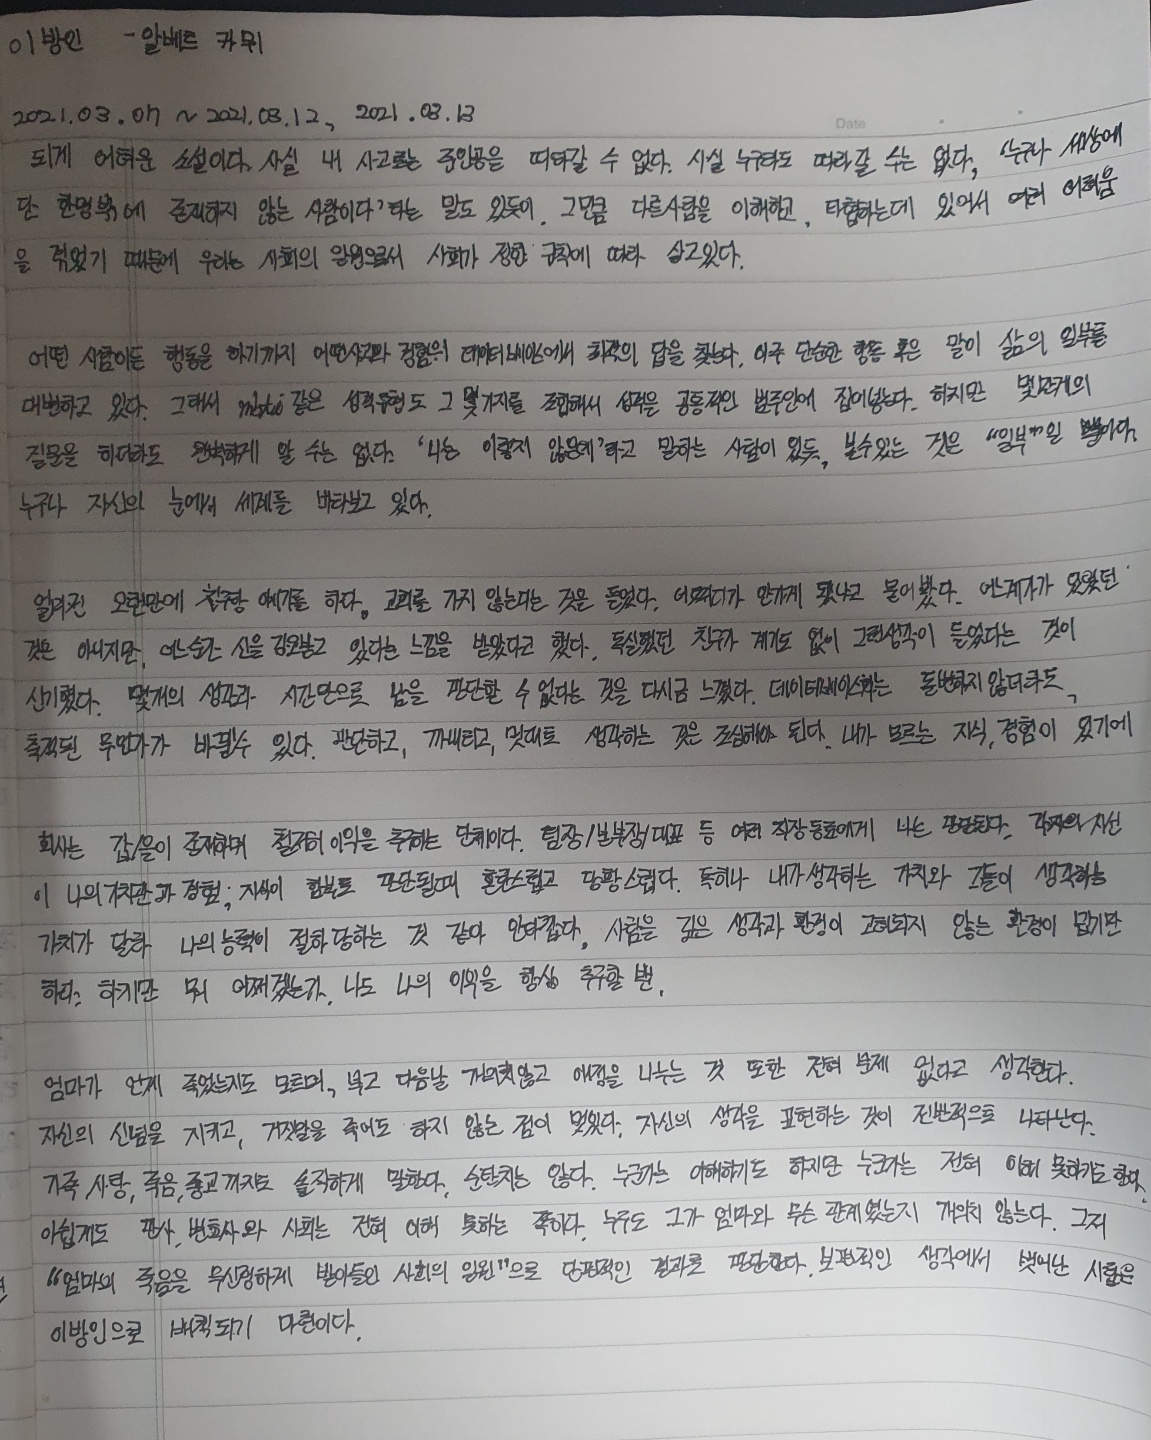 이방인 - 알베르 카뮈
2021.03.07 ~ 2021.03.12, 2021.03.13
Date
되게 어려운 소설이다. 사실 내 사고로는 주인공을 따라갈 수 없다. 사실 누구라도 따라갈 수는 없다, '누구나 세상에
단 한명밖에 존재하지 않는 사람이다'라는 말도 있듯이. 그만큼 다른사람을 이해하고, 타협하는데 있어서 여러 어려움
을 겪었기 때문에 우리는 사회의 일원으로서 사회가 정한 규칙에 따라 살고있다.
어떤 사람이든 행동을 하기까지 어떤사고와 경험위 데이터베이스에서 최적의 답을 찾는다. 아주 단순한 행동 혹은 말이 삶의 일부를
대변하고 있다. 그래서 mbti 같은 성격유형도 그 몇가지를 조합해서 성격을 공통적인 범주안에 집어넣는다. 하지만 몇십개의
질문을 하더라도 완벽하게 알 수는 없다. '나는 이렇지 않은데'라고 말하는 사람이 있듯, 볼수있는 것은 "일부"일 뿐이다.
누구나 자신의 눈에서 세계를 바라보고 있다.
얼마전 오랜만에 친구랑 얘기를 하다. 교회를 가지 않는다는 것을 들었다. 어쩌다가 안가게 됐냐고 물어봤다. 어느계기가 있었던
것은 아니지만, 어느순간 신을 깔보고 있다는 느낌을 받았다고 했다. 독실했던 친구가 계기도 없이 그런생각이 들었다는 것이
신기했다. 몇개의 생각과 시간만으로 남을 판단할 수 없다는 것을 다시금 느꼈다. 데이터베이스화는 돌변하지 않더라도,
축적된 무언가가 바뀔수 있다. 판단하고, 깎내리고, 멋대로 생각하는 것은 조심해야 된다. 내가 모르는 지식, 경험이 있기에
회사는 갑/을이 존재하며 철저히 이익을 추구하는 단체이다. 팀장/본부장/대표 등 여러 직장동료에게 나는 판단된다. 각자의 시선
이 나의 가치관과 경험, 지식이 함부로 판단될때 혼란스럽고 당황스럽다. 특히나 내가생각하는 가치와 그들이 생각하는
가치가 달라 나의 능력이 절하당하는 것 같아 안타깝다. 사람을 깊은 생각과 환경이 고려되지 않는 환경이 밉기만
하다. 하지만 뭐 어쩌겠는가. 나도 나의 이익을 항상 추구할 뿐.
엄마가 언제 죽었는지도 모르며, 부고 다음날 개의치않고 애정을 나누는 것 또한 전혀 문제 없다고 생각한다.
자신의 신념을 지키고, 거짓말을 죽어도 하지 않는 점이 멋있다. 자신의 생각을 표현하는 것이 전반적으로 나타난다.
가족, 사랑, 죽음, 종교까지도 솔직하게 말한다. 순탄치는 않다. 누군가는 이해하기도 하지만 누군가는 전혀 이해 못하기도 한다.
아쉽게도 판사, 변호사와 사회는 전혀 이해 못하는 쪽이다. 누구도 그가 엄마와 무슨 관계였는지 개의치 않는다. 그저
"엄마의 죽음을 무신경하게 받아들인 사회의 일원"으로 단편적인 결과로 판단한다. 보편적인 생각에서 벗어난 사람은
이방인으로 배척되기 마련이다.